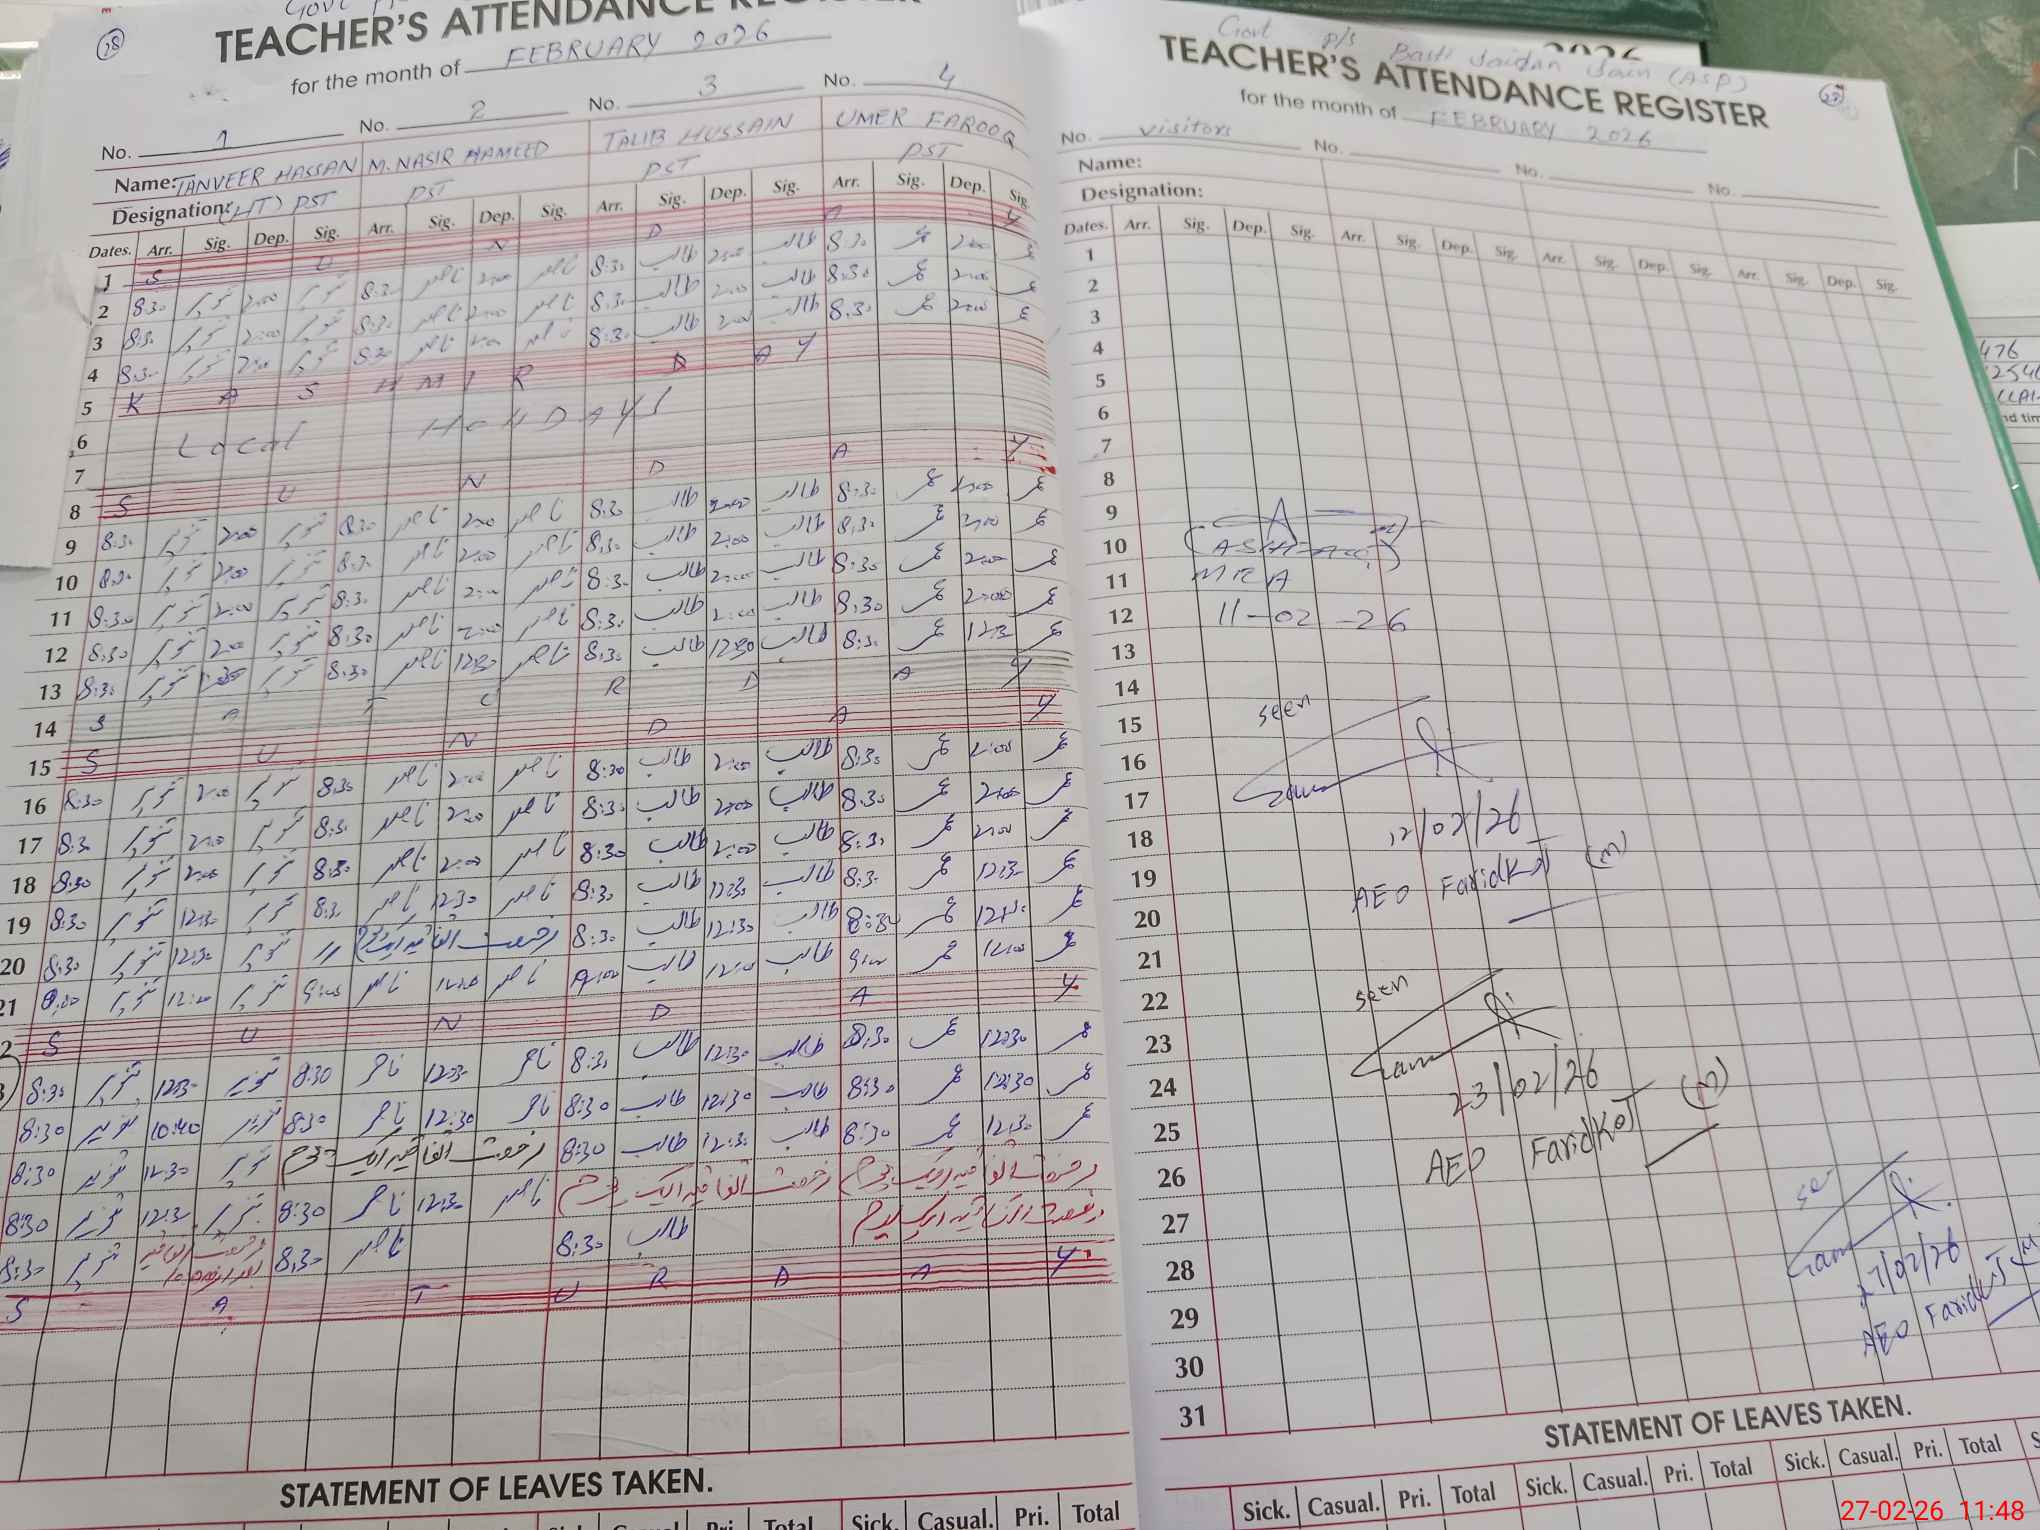 Govt
TEACHER'S ATTENDANCE REGISTER
28
for the month of FEBRUARY 2026
No. 1 No. 2 No. 3 No. 4
Name: TANVEER HASSAN M. NASIR HAMEED TALIB HUSSAIN UMER FAROOQ
Designation: (HT) PST PST PST PST
Dates. Arr. Sig. Dep. Sig. Arr. Sig. Dep. Sig. Arr. Sig. Dep. Sig. Arr. Sig. Dep. Sig.
1 S U N D A Y
2 8:30 تنویر 2:00 تنویر 8:30 ناصر 2:00 ناصر 8:30 طالب 2:00 طالب 8:30 عمر 2:00 عمر
3 8:30 تنویر 2:00 تنویر 8:30 ناصر 2:00 ناصر 8:30 طالب 2:00 طالب 8:30 عمر 2:00 عمر
4 8:30 تنویر 2:00 تنویر 8:30 ناصر 2:00 ناصر 8:30 طالب 2:00 طالب 8:30 عمر 2:00 عمر
5 K A S H M I R D A Y
6 Local HOLIDAY
7
8 S U N D A Y
9 8:30 تنویر 2:00 تنویر 8:30 ناصر 2:00 ناصر 8:30 طالب 2:00 طالب 8:30 عمر 2:00 عمر
10 8:30 تنویر 2:00 تنویر 8:30 ناصر 2:00 ناصر 8:30 طالب 2:00 طالب 8:30 عمر 2:00 عمر
11 8:30 تنویر 2:00 تنویر 8:30 ناصر 2:00 ناصر 8:30 طالب 2:00 طالب 8:30 عمر 2:00 عمر
12 8:30 تنویر 2:00 تنویر 8:30 ناصر 2:00 ناصر 8:30 طالب 2:00 طالب 8:30 عمر 2:00 عمر
13 8:30 تنویر تنویر 8:30 ناصر 12:30 ناصر 8:30 طالب 12:30 طالب 8:30 عمر 12:30 عمر
14 S A T U R D A Y
15 S U N D A Y
16 8:30 تنویر 2:00 تنویر 8:30 ناصر 2:00 ناصر 8:30 طالب 2:00 طالب 8:30 عمر 2:00 عمر
17 8:30 تنویر 2:00 تنویر 8:30 ناصر 2:00 ناصر 8:30 طالب 2:00 طالب 8:30 عمر 2:00 عمر
18 8:30 تنویر 2:00 تنویر 8:30 ناصر 2:00 ناصر 8:30 طالب 2:00 طالب 8:30 عمر 2:00 عمر
19 8:30 تنویر 12:30 تنویر 8:30 ناصر 12:30 ناصر 8:30 طالب 12:30 طالب 8:30 عمر 12:30 عمر
20 8:30 تنویر 12:30 تنویر // رخصت اتفاقیہ ایک یوم 8:30 طالب 12:30 طالب 8:30 عمر 12:30 عمر
21 9:00 تنویر 12:00 تنویر 9:00 ناصر 12:00 ناصر 9:00 طالب 12:00 طالب 9:00 عمر 12:00 عمر
2 S U N D A Y
8:30 تنویر 12:30 تنویر 8:30 ناصر 12:30 ناصر 8:30 طالب 12:30 طالب 8:30 عمر 12:30 عمر
8:30 تنویر 10:40 تنویر 8:30 ناصر 12:30 ناصر 8:30 طالب 12:30 طالب 8:30 عمر 12:30 عمر
8:30 تنویر 12:30 تنویر رخصت اتفاقیہ ایک یوم 8:30 طالب 12:30 طالب 8:30 عمر 12:30 عمر
8:30 تنویر 12:30 تنویر 8:30 ناصر 12:30 ناصر رخصت اتفاقیہ ایک یوم رخصت اتفاقیہ ایک یوم
8:30 تنویر رخصت اتفاقیہ 8:30 ناصر 8:30 طالب رخصت اتفاقیہ ایک یوم
S A T U R D A Y
STATEMENT OF LEAVES TAKEN.
Sick. Casual. Pri. Total Sick. Casual. Pri. Total
2026
Govt P/S Basti Jaidan Sain (ASP)
TEACHER'S ATTENDANCE REGISTER
28
for the month of FEBRUARY 2026
No. visitors No. No. No.
Name:
Designation:
Dates. Arr. Sig. Dep. Sig. Arr. Sig. Dep. Sig. Arr. Sig. Dep. Sig. Arr. Sig. Dep. Sig.
1
2
3
4
5
6
7
8
9
10
11 MEA
12 11-02-26
13
14
15 seen
16
17
18 12/02/26
19 AEO FaridKot (M)
20
21
22 seen
23
24 23/02/26
25
26 AEO FaridKot (M)
27
28 27/02/26
29 AEO FaridKot (M)
30
31
STATEMENT OF LEAVES TAKEN.
Sick. Casual. Pri. Total Sick. Casual. Pri. Total Sick. Casual. Pri. Total
476
nd tim
27-02-26 11:48